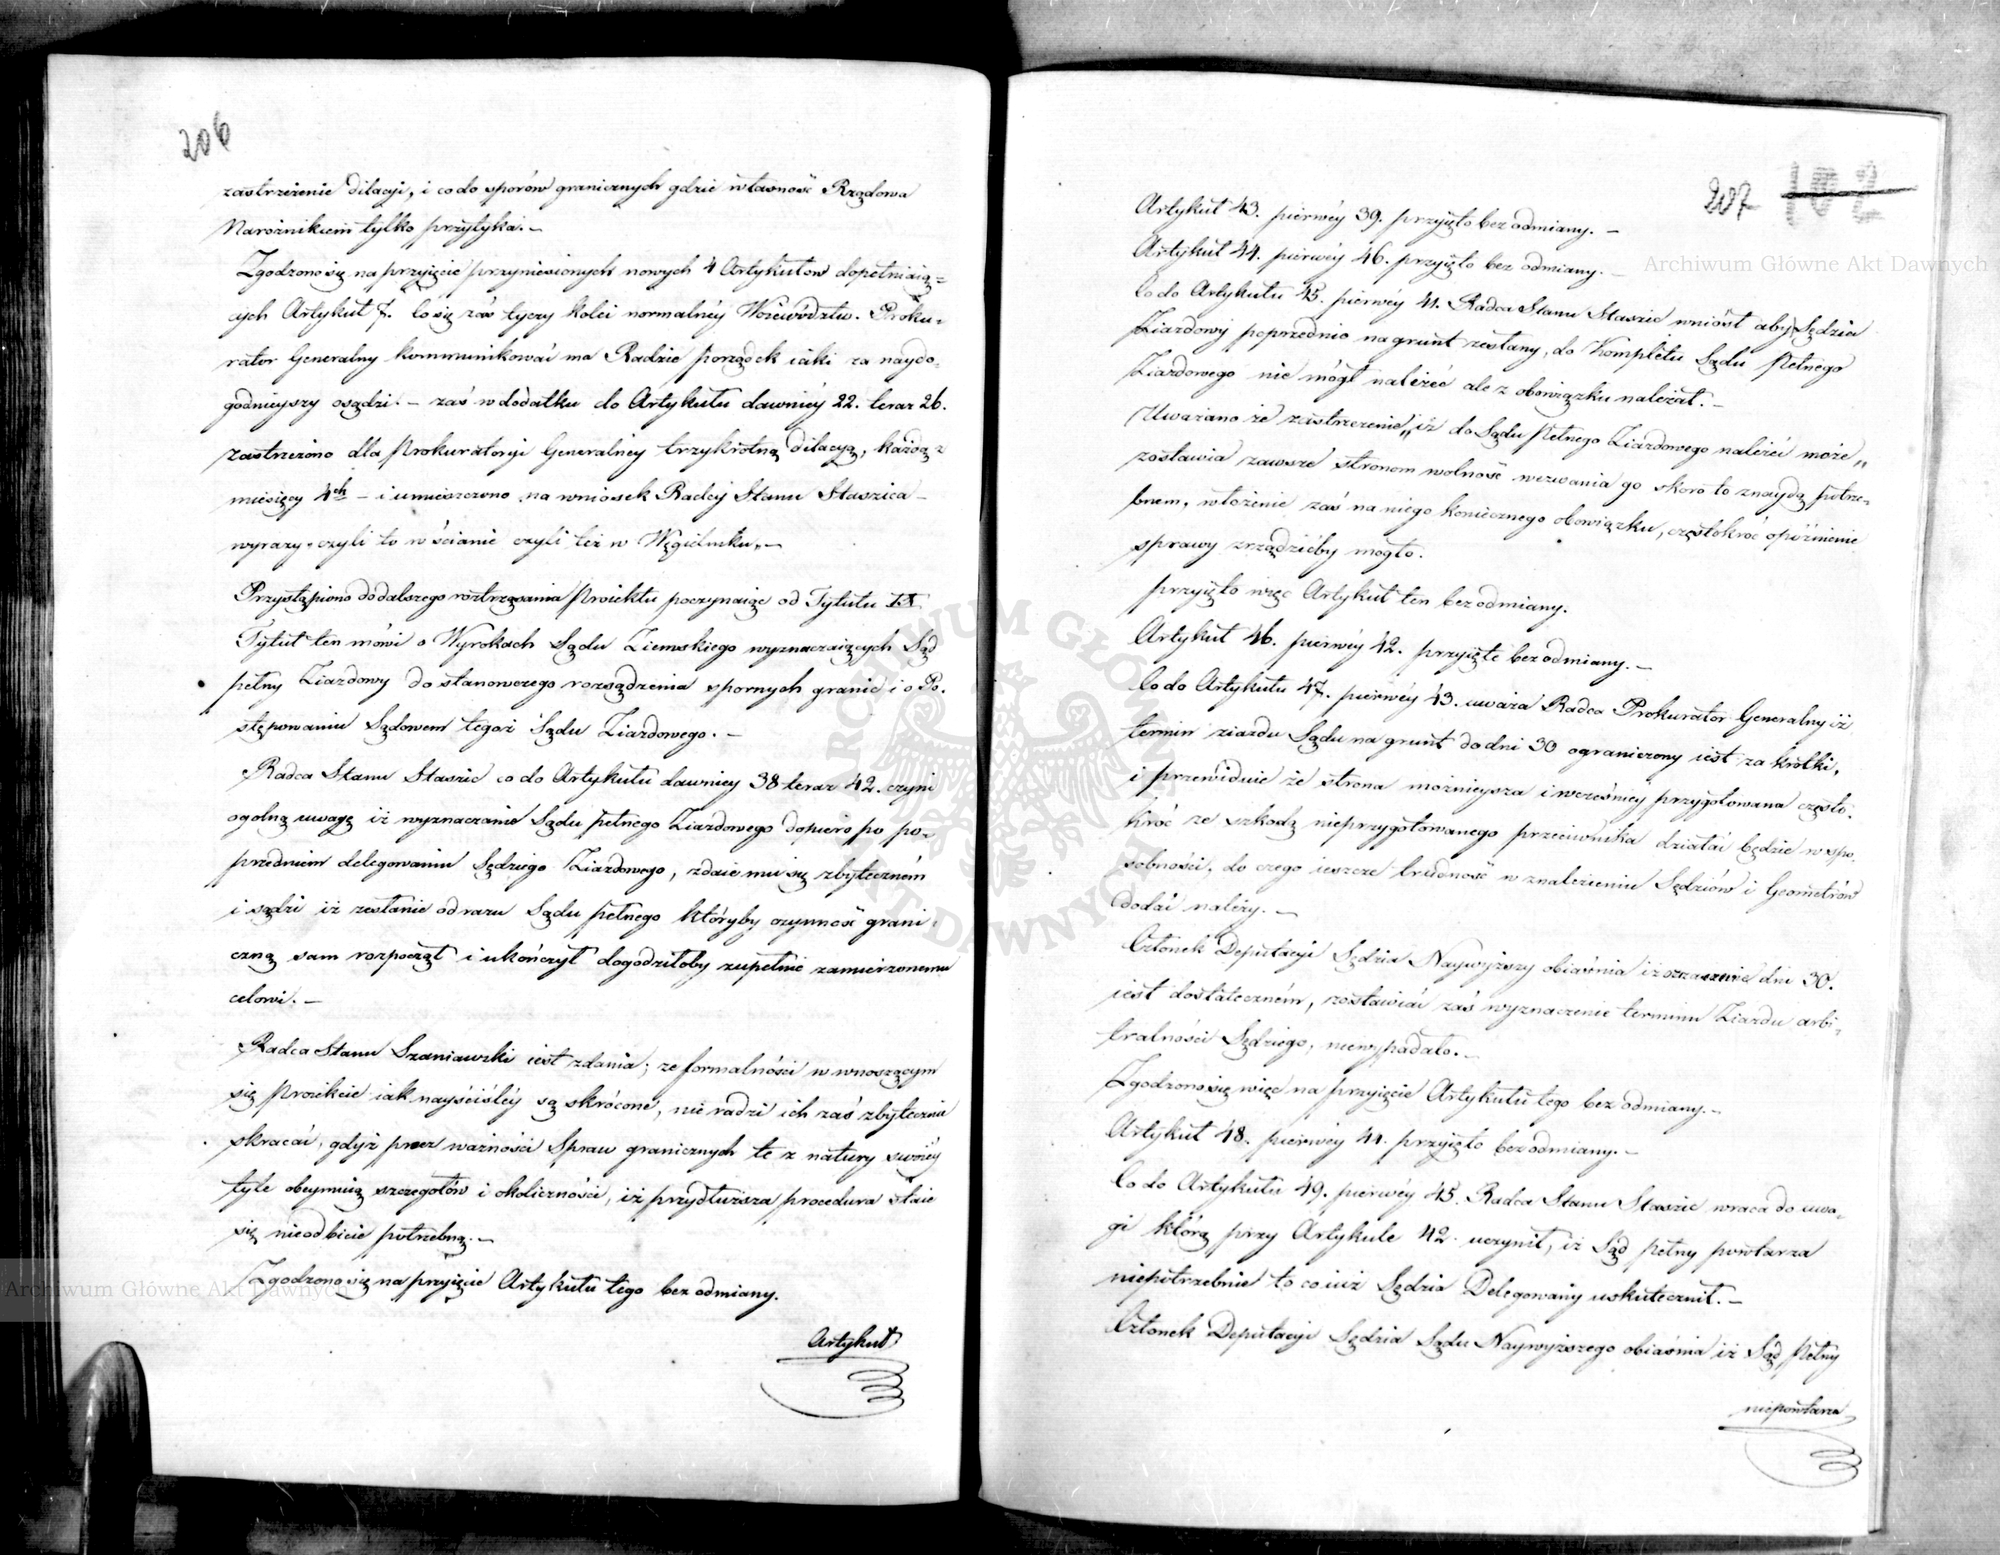 206
zastrzeżenie dilacji, i co do sporów granicznych gdzie własność Rządowa
Narożnikiem tylko przytyka. –
Zgodzono się na przyjęcie przyniesionych nowych 4 Artykułów dopełniaią=
cych Artykuł 7. Co się zaś tyczy kolei normalnéy Woiewództw. Proku=
rator Generalny kommunikować ma Radzie porządek iaki za naydo=
godnieyszy osądzi. – zaś w dodatku do Artykułu dawniéy 22. teraz 26.
zastrzeżono dla Prokuratoryi Generalnéy trzykrotną dilacyą, każdą z
miesięcy 4ch – i umieszczono na wniosek Radcy Stanu Staszica –
wyrazy „czyli to w ścianie czyli też w Węgielniku„ –
Przystąpiono do dalszego roztrząsania Proiektu poczynaiąc od Tytułu IX
Tytuł ten mówi o Wyrokach Sądu Ziemskiego wyznaczaiących Sąd
pełny Ziazdowy do stanowczego rozsądzenia spornych granic i o Po=
stępowaniu Sądowem tegoż Sądu Ziazdowego. –
Radca Stanu Staszic co do Artykułu dawniey 38 teraz 42. czyni
ogolną uwagę iż wyznaczanie Sądu pełnego Ziazdowego dopiero po po=
przedniem delegowaniu Sędziego Ziazdowego, zdaie mu się zbyteczném
i sądzi iż zesłanie od razu Sądu pełnego któryby czynność grani=
czną sam rozpoczął i ukończył dogodziłoby zupełnie zamierzonemu
celowi. –
Radca Stanu Szaniawski iest zdania; ze formalności w wnoszącym
się Proiekcie iak nayściśléy są skrócone, nie radzi ich zaś zbytecznie
skracać, gdyż przez ważności Spraw granicznych te z natury swoiéy
tyle obeymuią szczegołów i okoliczności, iż przydłuższa procedura staie
się nieodbicie potrzebną. –
Zgodzono się na przyjęcie Artykułu tego bez odmiany.
Artykuł
207 102
Artykuł 43. pierwéy 39. przyjęto bez odmiany. –
Artykuł 44. pierwéy 46. przyjęto bez odmiany. –
Co do Artykułu 45. pierwéy 41. Radca Stanu Staszic wniósł aby Sędzia
Ziazdowy poprzednio na grunt zesłany, do Kompletu Sądu Pełnego
Ziazdowego nie mógł należeć ale z obowiązku należał. –
Uważano że zastrzeżenie „iż do Sądu Pełnego Ziazdowego należeć może„
zostawia zawsze stronom wolność wezwania go skoro to znaydą potrze=
bnem, włożenie zaś na niego koniecznego obowiązku, częstokroć opóźnienie
sprawy zrządzićby mogło.
przyjęto więc Artykuł ten bez odmiany.
Artykuł 46. pierwéy 42. przyięte bez odmiany. –
Co do Artykułu 47. pierwéy 43. uważa Radca Prokurator Generalny iż
termin ziazdu Sądu na grunt do dni 30 ograniczony iest za krótki,
i przewiduie że strona możnieysza i wcześniéy przygotowana często=
kroć ze szkodą nieprzygotowanego przeciwnika działać będzie w spo=
sobności, do czego ieszcze trudność w znalezieniu Sędziów i Geometrów
dodać należy. –
Członek Deputacyi Sędzia Naywyższy obiaśnia iż oznaczenie dni 30.
iest dostateczném, zostawiać zaś wyznaczenie terminu Ziazdu arbi=
tralności Sędziego, niewypadało. –
Zgodzono się więc na przyjęcie Artykułu tego bez odmiany. –
Artykuł 48. pierwéy 44. przyjęto bez odmiany. –
Co do Artykułu 49. pierwéy 45. Radca Stanu Staszic wraca do uwa=
gi którą przy Artykule 42. uczynił, iż Sąd pełny powtarza
niepotrzebnie to co iuż Sędzia Delegowany uskutecznił. –
Członek Deputacyi Sędzia Sądu Naywyższego obiaśnia iż Sąd Pełny
niepowtarza
Archiwum Główne Akt Dawnych
Archiwum Główne Akt Dawnych
ARCHIWUM GŁÓWNE AKT DAWNYCH